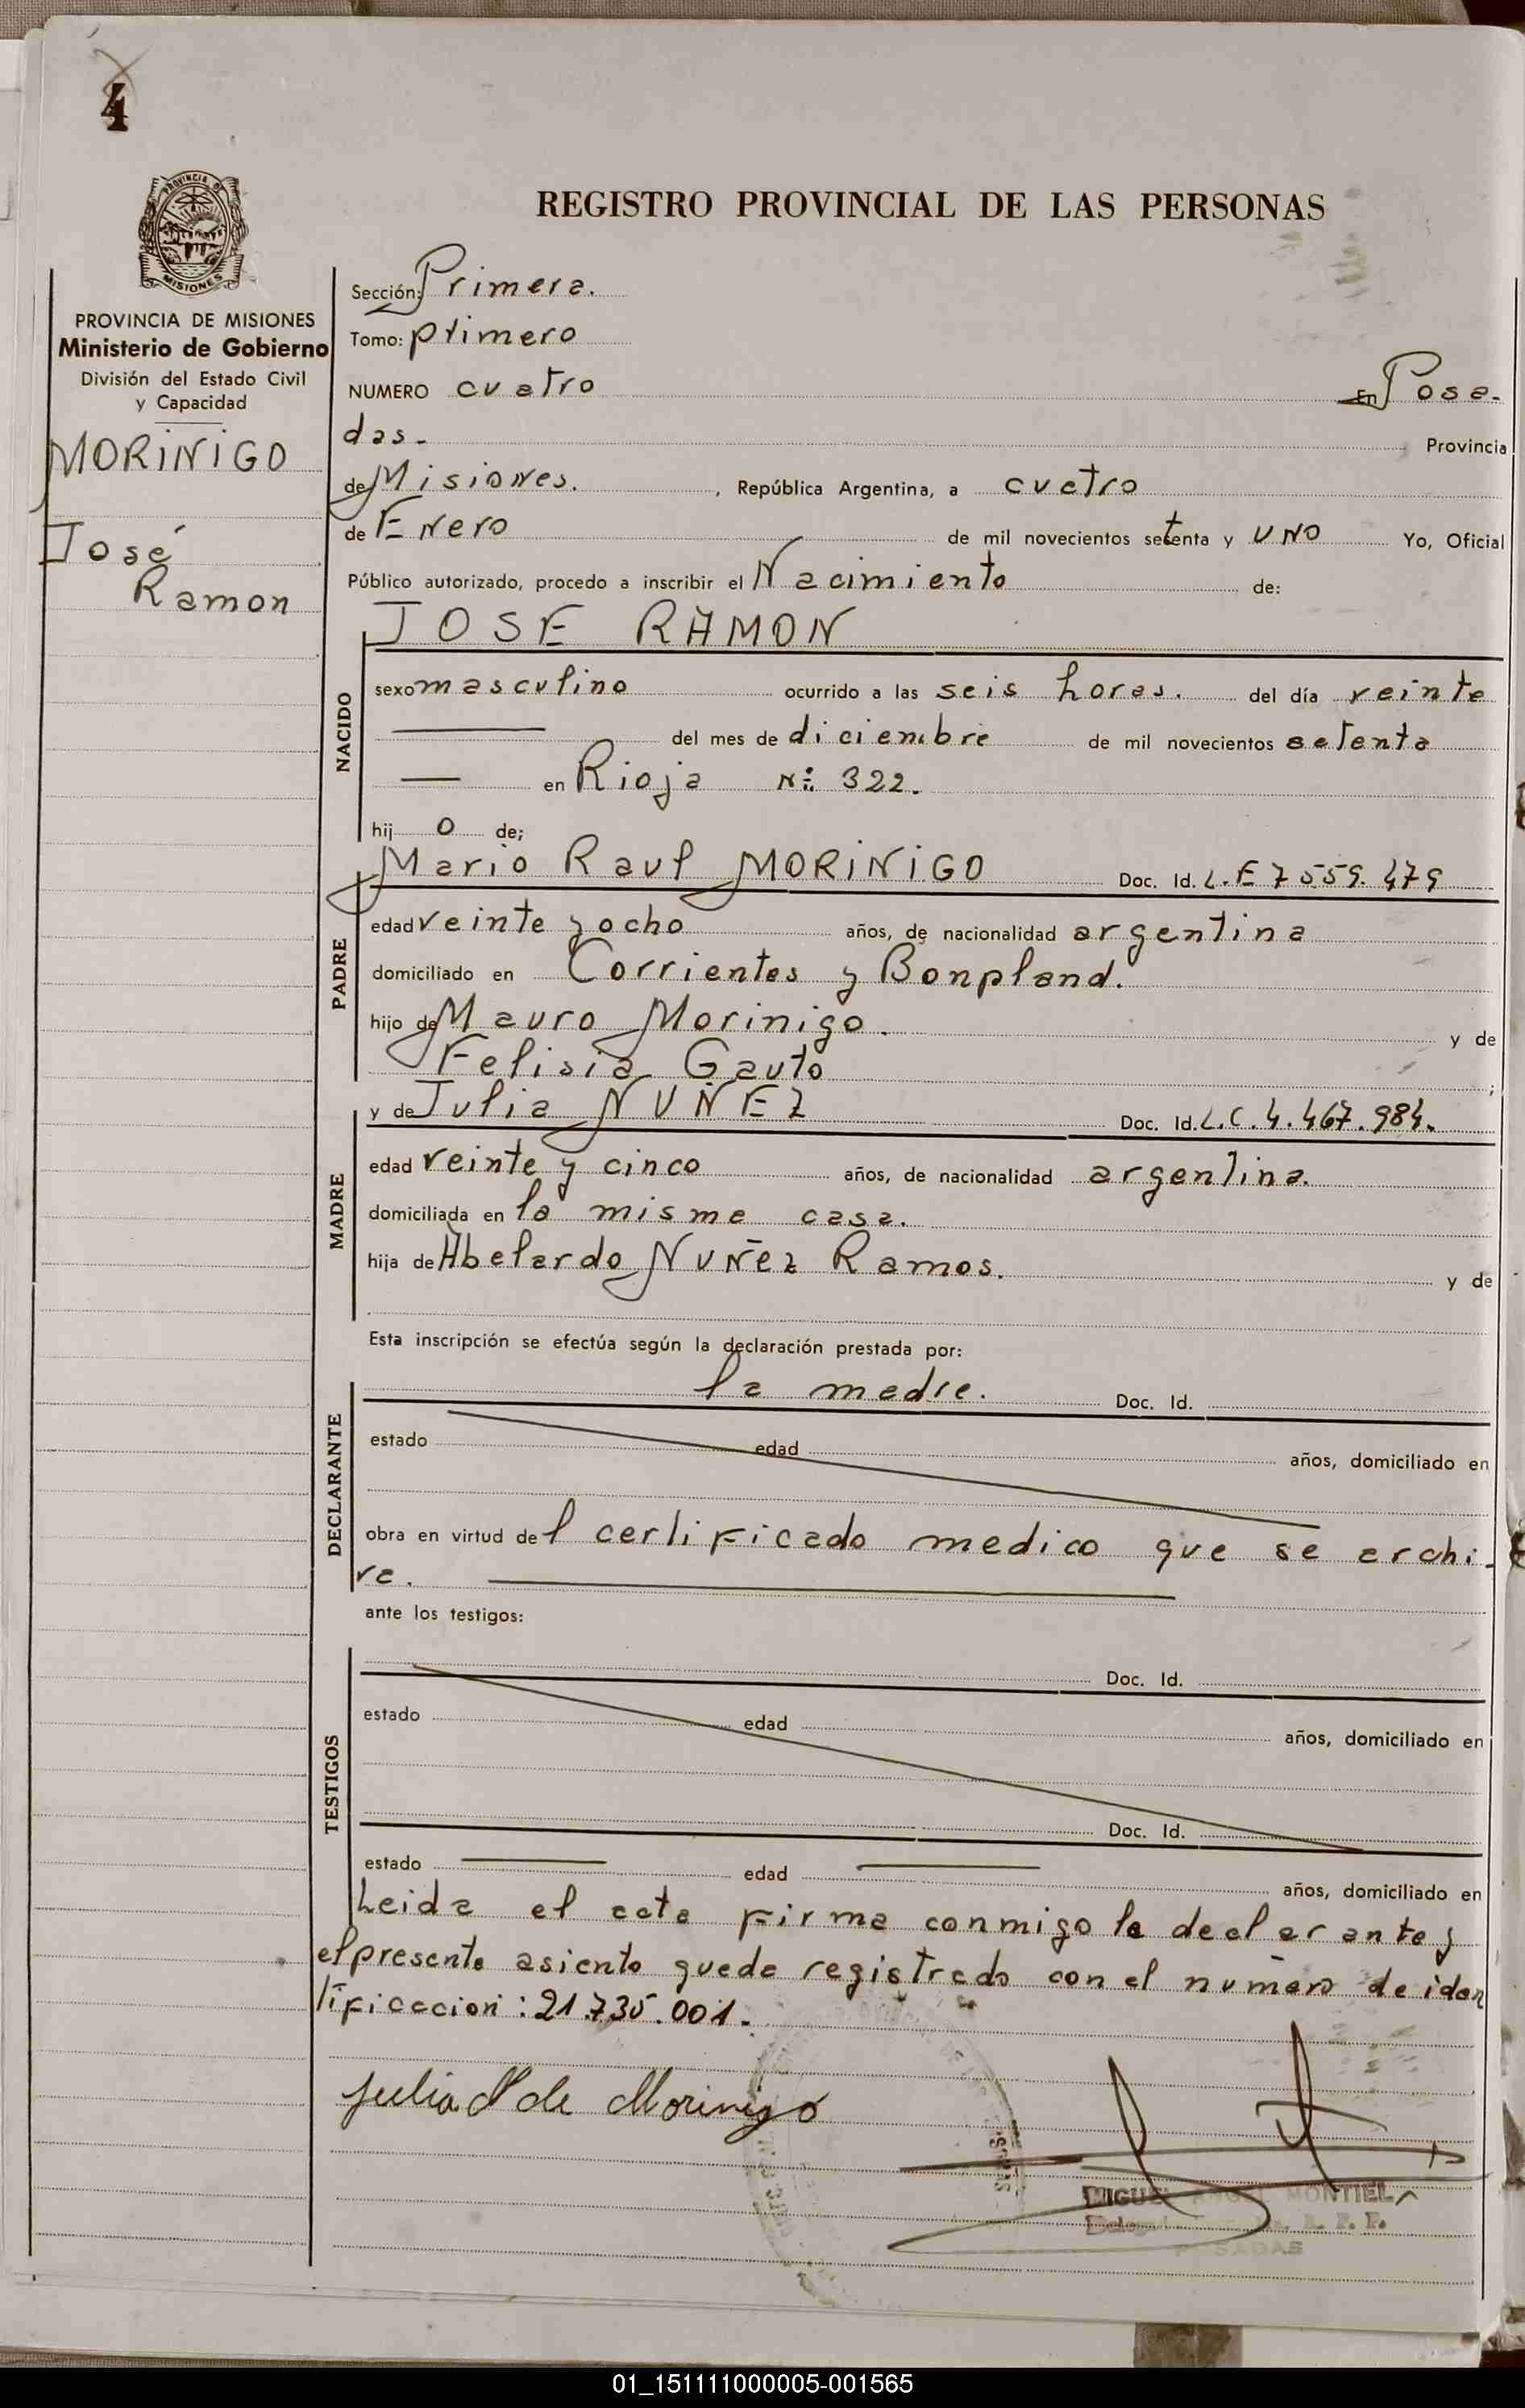 4
REGISTRO PROVINCIAL DE LAS PERSONAS
PROVINCIA DE MISIONES
PROVINCIA DE MISIONES
Ministerio de Gobierno
División del Estado Civil
y Capacidad
MORINIGO
José
Ramon
Sección: Primera.
Tomo: primero
NUMERO cuatro En Posa-
das. Provincia
de Misiones. , República Argentina, a cuatro
de Enero de mil novecientos setenta y uno Yo, Oficial
Público autorizado, procedo a inscribir el Nacimiento de:
NACIDO
JOSE RAMON
sexo masculino ocurrido a las seis horas. del día veinte
del mes de diciembre de mil novecientos setenta
en Rioja Nº 322.
hij o de;
PADRE
Mario Raul MORINIGO Doc. Id. L.E 7559.479
edad veinte y ocho años, de nacionalidad argentina
domiciliado en Corrientes y Bonpland.
hijo de Mauro Morinigo. y de
Felisia Gauto ;
MADRE
y de Julia NUÑEZ Doc. Id. L.C.4.467.984.
edad veinte y cinco años, de nacionalidad argentina.
domiciliada en la misma casa.
hija de Abelardo Nuñez Ramos. y de
Esta inscripción se efectúa según la declaración prestada por:
DECLARANTE
la madre. Doc. Id.
estado edad años, domiciliado en
obra en virtud del certificado medico que se archi-
va.
ante los testigos:
TESTIGOS
Doc. Id.
estado edad años, domiciliado en
Doc. Id.
estado edad años, domiciliado en
Leida el acta firma conmigo la declarante y
el presente asiento queda registrado con el numero de iden
tificacion: 21.735.001.
Julia N de Morinigo
MIGUEL ANGEL MONTIEL
R. P. P.
POSADAS
01_151111000005-001565